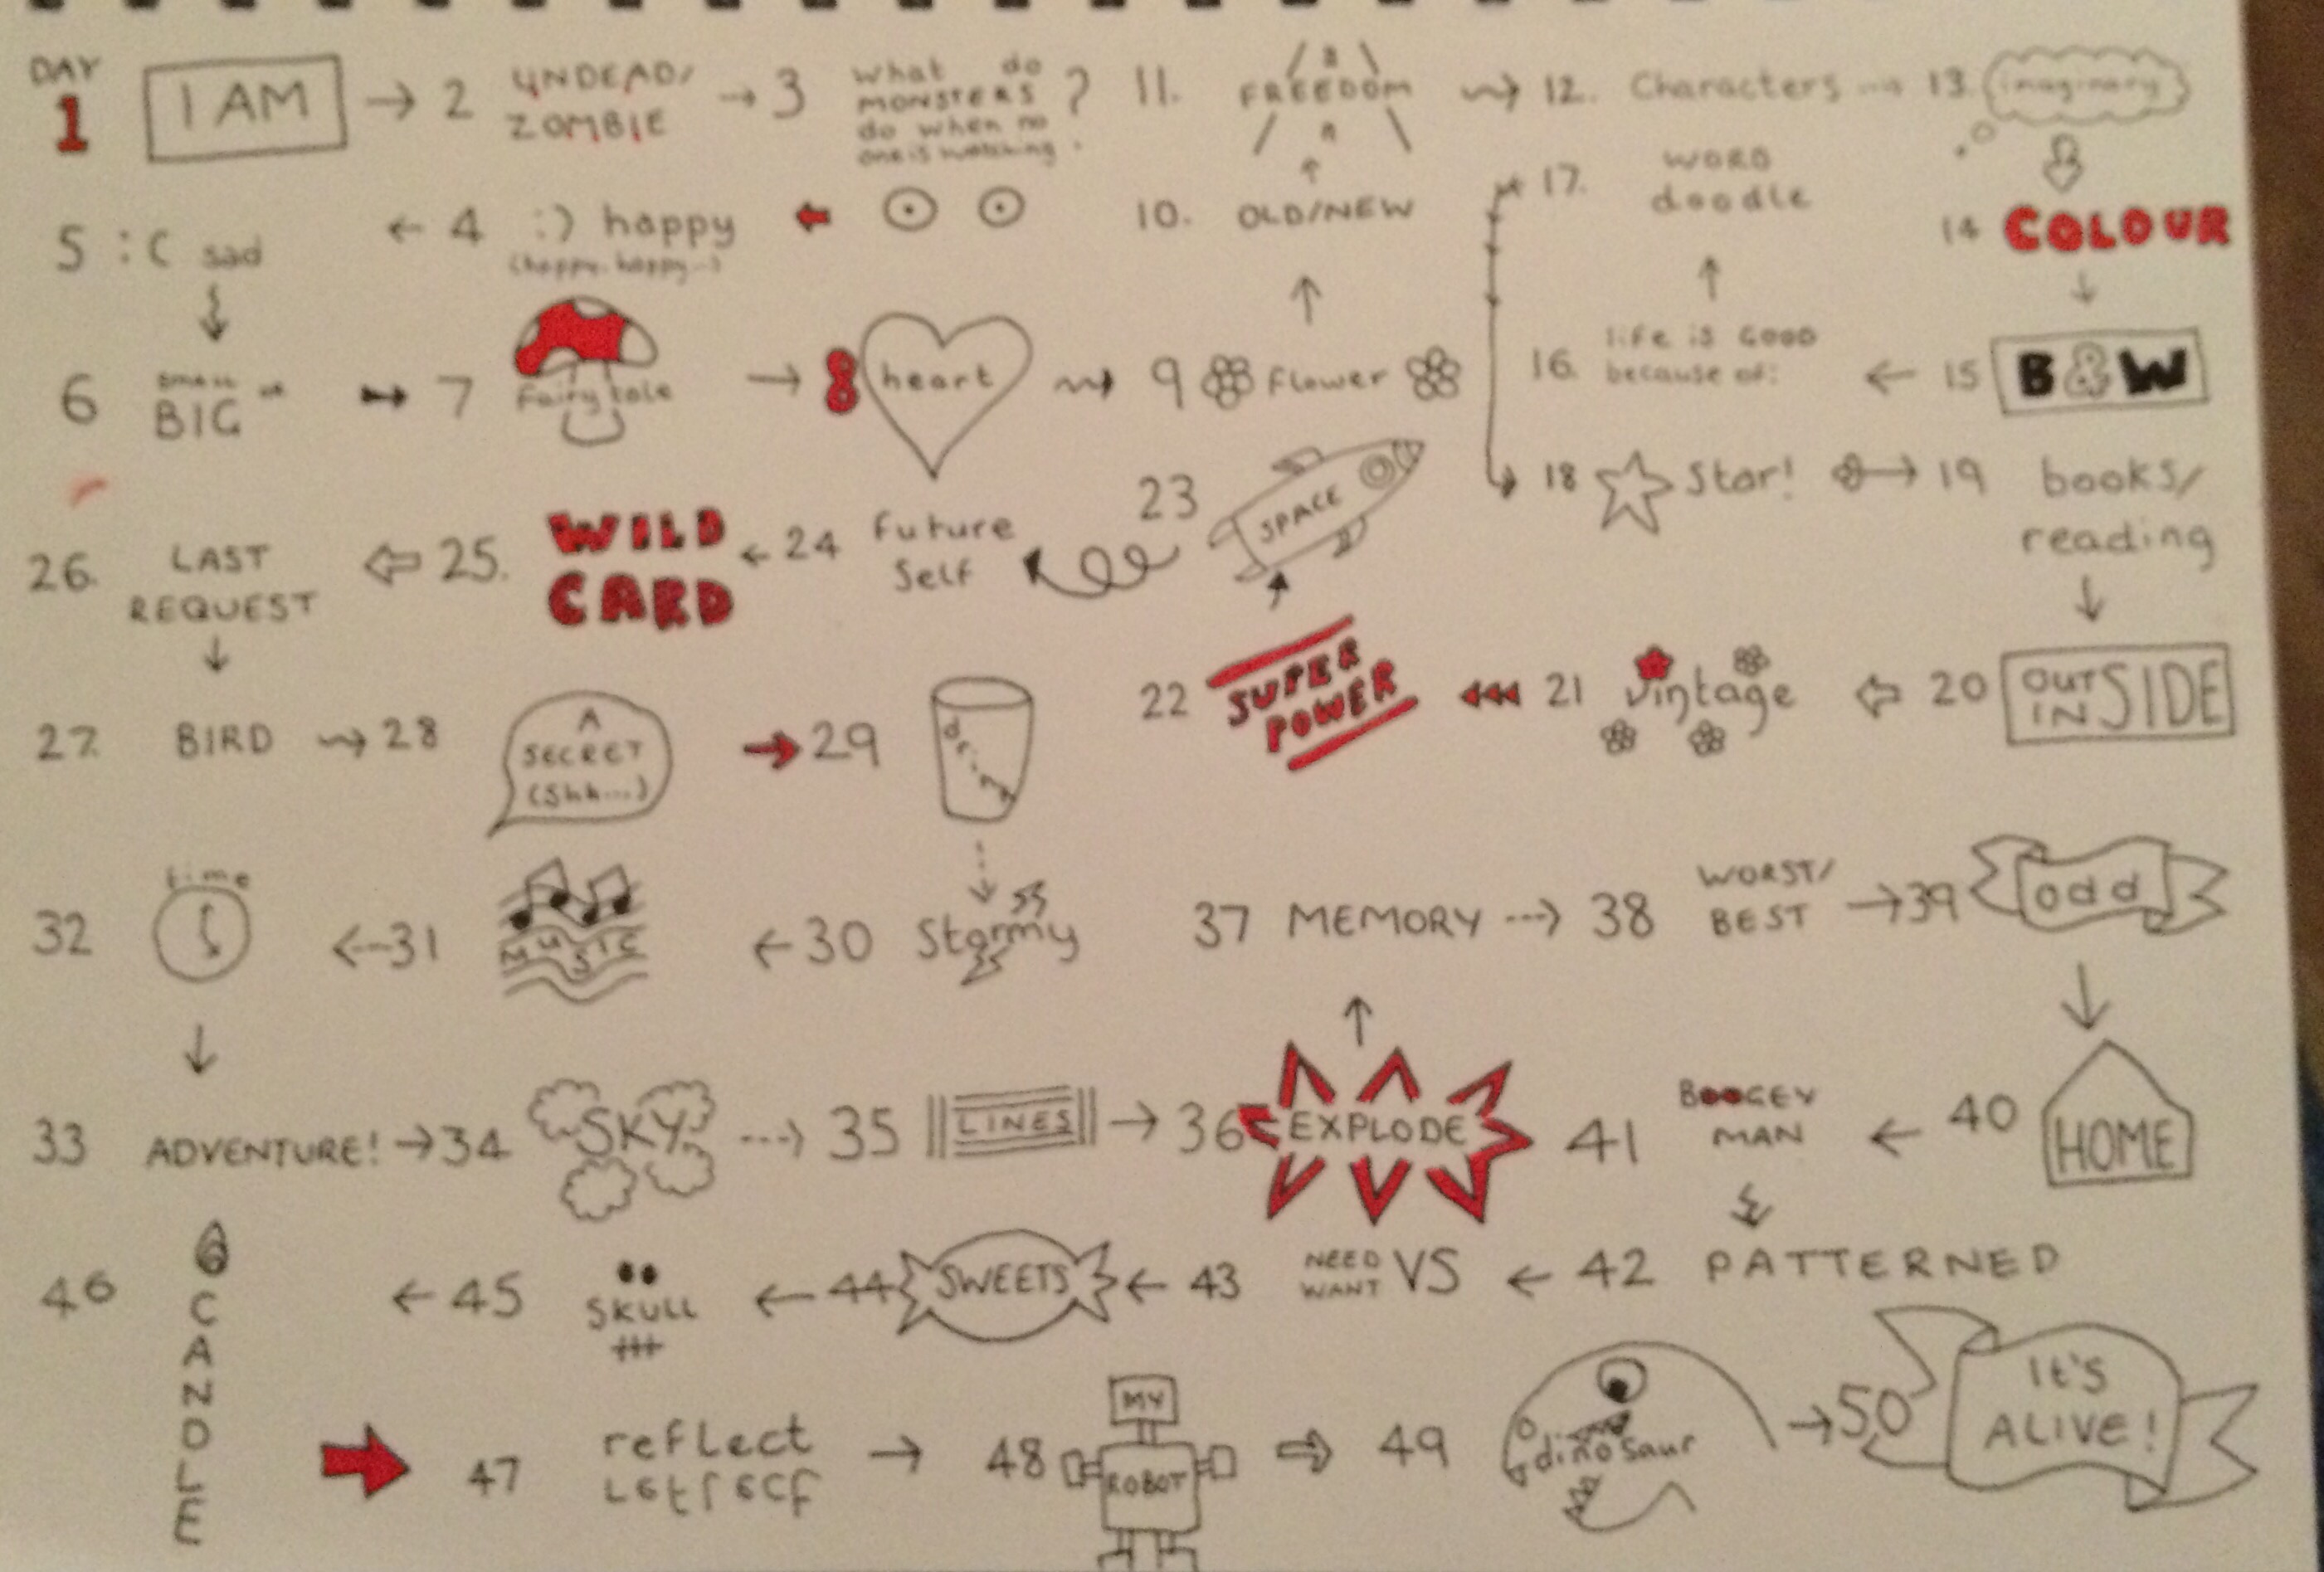 DAY
1 I AM
2 UNDEAD/
ZOMBIE
3 What do
MONSTERS
do when no
one is watching ?
4 :) happy
(happy.happy..)
5 :C sad
6 SMALL or
BIG
7 Fairy tale
8 heart
9 Flower
10. OLD/NEW
11. FREEDOM
12. Characters
13. imaginary
14 COLOUR
15 B&W
16. life is GOOD
because of:
17. WORD
doodle
18 Star!
19 books/
reading
20 OUT
IN SIDE
21 vintage
22 SUPER
POWER
23 SPACE
24 Future
Self
25. WILD
CARD
26. LAST
REQUEST
27. BIRD
28 A
SECRET
(Shh...)
29 drink
30 Stormy
31 MUSIC
32 time
33 ADVENTURE!
34 SKY
35 LINES
36 EXPLODE
37 MEMORY
38 WORST/
BEST
39 odd
40 HOME
41 BOOGEY
MAN
42 PATTERNED
43 NEED
WANT VS
44 SWEETS
45 SKULL
46 CANDLE
47 reflect
reflect
48 MY
ROBOT
49 dinosaur
50 It's
ALIVE!